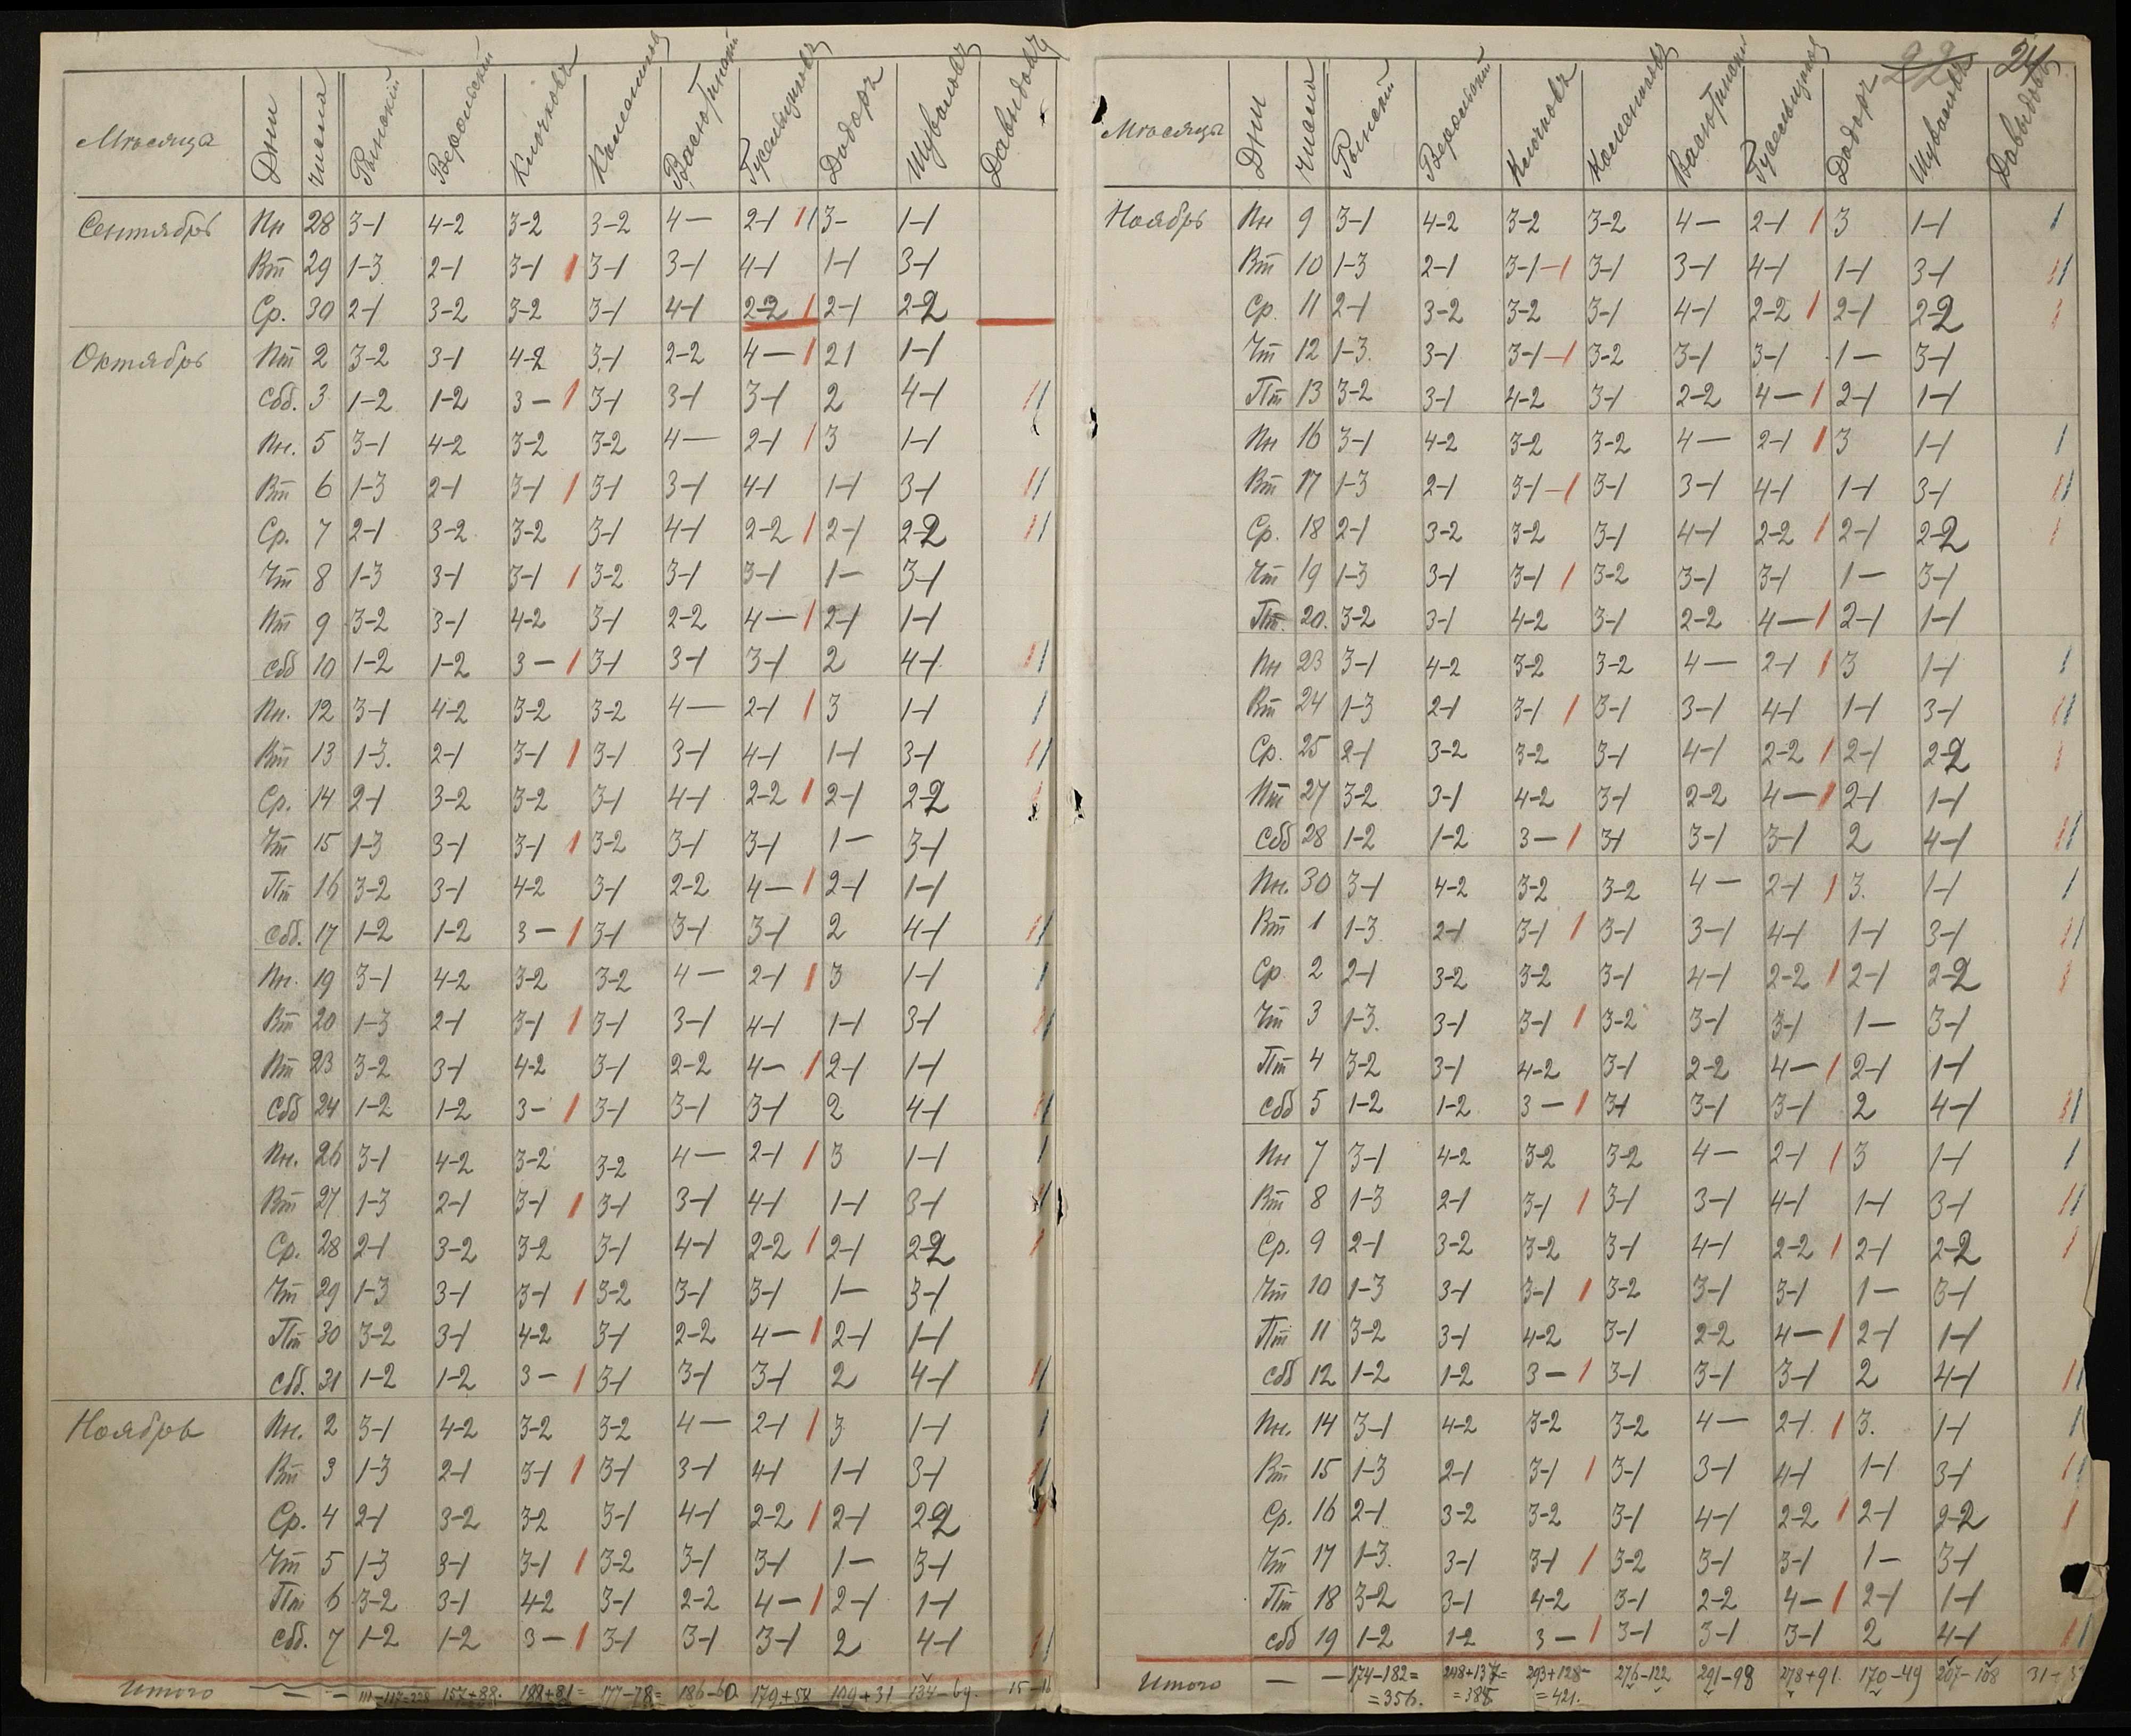 22 24
Мѣсяца Дни Числа Рынскій Верольскій Клочковъ Васютинскій Гусельщиковъ Додоръ Шуваловъ Давыдовъ
Сентябрь Пн 28 3-1 4-2 3-2 3-2 4— 2-1 3- 1-1
Вт 29 1-3 2-1 3-1 3-1 3-1 4-1 1-1 3-1
Ср. 30 2-1 3-2 3-2 3-1 4-1 2-2 2-1 2-2
Октябрь Пт 2 3-2 3-1 4-2 3-1 2-2 4— 21 1-1
Сбб. 3 1-2 1-2 3— 3-1 3-1 3-1 2 4-1
Пн. 5 3-1 4-2 3-2 3-2 4— 2-1 3 1-1
Вт 6 1-3 2-1 3-1 3-1 3-1 4-1 1-1 3-1
Ср. 7 2-1 3-2 3-2 3-1 4-1 2-2 2-1 2-2
Чт 8 1-3 3-1 3-1 3-2 3-1 3-1 1— 3-1
Пт 9 3-2 3-1 4-2 3-1 2-2 4— 2-1 1-1
Сбб 10 1-2 1-2 3— 3-1 3-1 3-1 2 4-1
Пн. 12 3-1 4-2 3-2 3-2 4— 2-1 3 1-1
Вт 13 1-3. 2-1 3-1 3-1 3-1 4-1 1-1 3-1
Ср. 14 2-1 3-2 3-2 3-1 4-1 2-2 2-1 2-2
Чт 15 1-3 3-1 3-1 3-2 3-1 3-1 1— 3-1
Пт 16 3-2 3-1 4-2 3-1 2-2 4— 2-1 1-1
Сбб. 17 1-2 1-2 3— 3-1 3-1 3-1 2 4-1
Пн. 19 3-1 4-2 3-2 3-2 4— 2-1 3 1-1
Вт 20 1-3 2-1 3-1 3-1 3-1 4-1 1-1 3-1
Пт 23 3-2 3-1 4-2 3-1 2-2 4— 2-1 1-1
Сбб 24 1-2 1-2 3- 3-1 3-1 3-1 2 4-1
Пн. 26 3-1 4-2 3-2 3-2 4— 2-1 3 1-1
Вт 27 1-3 2-1 3-1 3-1 3-1 4-1 1-1 3-1
Ср. 28 2-1 3-2 3-2 3-1 4-1 2-2 2-1 2-2
Чт 29 1-3 3-1 3-1 3-2 3-1 3-1 1— 3-1
Пт 30 3-2 3-1 4-2 3-1 2-2 4— 2-1 1-1
Сбб. 31 1-2 1-2 3— 3-1 3-1 3-1 2 4-1
Ноябрь Пн. 2 3-1 4-2 3-2 3-2 4— 2-1 3 1-1
Вт 3 1-3 2-1 3-1 3-1 3-1 4-1 1-1 3-1
Ср. 4 2-1 3-2 3-2 3-1 4-1 2-2 2-1 2-2
Чт 5 1-3 3-1 3-1 3-2 3-1 3-1 1— 3-1
Пт 6 3-2 3-1 4-2 3-1 2-2 4— 2-1 1-1
Сбб. 7 1-2 1-2 3— 3-1 3-1 3-1 2 4-1
Итого — — 157+88. 188+81= 177-78= 186-60 179+58 109+31 134-69. 15-16
Мѣсяцы Дни Числа Рынскій Верольскій Клочковъ Васютинскій Гусельщиковъ Додоръ Шуваловъ Давыдовъ
Ноябрь Пн 9 3-1 4-2 3-2 3-2 4— 2-1 3 1-1
Вт 10 1-3 2-1 3-1 3-1 3-1 4-1 1-1 3-1
Ср. 11 2-1 3-2 3-2 3-1 4-1 2-2 2-1 2-2
Чт 12 1-3. 3-1 3-1 3-2 3-1 3-1 1— 3-1
Пт 13 3-2 3-1 4-2 3-1 2-2 4— 2-1 1-1
Пн 16 3-1 4-2 3-2 3-2 4— 2-1 3 1-1
Вт 17 1-3 2-1 3-1 3-1 3-1 4-1 1-1 3-1
Ср. 18 2-1 3-2 3-2 3-1 4-1 2-2 2-1 2-2
Чт 19 1-3 3-1 3-1 3-2 3-1 3-1 1— 3-1
Пт. 20. 3-2 3-1 4-2 3-1 2-2 4— 2-1 1-1
Пн 23 3-1 4-2 3-2 3-2 4— 2-1 3 1-1
Вт 24 1-3 2-1 3-1 3-1 3-1 4-1 1-1 3-1
Ср. 25 2-1 3-2 3-2 3-1 4-1 2-2 2-1 2-2
Пт 27 3-2 3-1 4-2 3-1 2-2 4— 2-1 1-1
Сбб 28 1-2 1-2 3— 3-1 3-1 3-1 2 4-1
Пн. 30 3-1 4-2 3-2 3-2 4— 2-1 3. 1-1
Вт 1 1-3 2-1 3-1 3-1 3-1 4-1 1-1 3-1
Ср. 2 2-1 3-2 3-2 3-1 4-1 2-2 2-1 2-2
Чт 3 1-3. 3-1 3-1 3-2 3-1 3-1 1— 3-1
Пт 4 3-2 3-1 4-2 3-1 2-2 4— 2-1 1-1
Сбб 5 1-2 1-2 3— 3-1 3-1 3-1 2 4-1
Пн 7 3-1 4-2 3-2 3-2 4— 2-1 3 1-1
Вт 8 1-3 2-1 3-1 3-1 3-1 4-1 1-1 3-1
Ср. 9 2-1 3-2 3-2 3-1 4-1 2-2 2-1 2-2
Чт 10 1-3 3-1 3-1 3-2 3-1 3-1 1— 3-1
Пт 11 3-2 3-1 4-2 3-1 2-2 4— 2-1 1-1
Сбб 12 1-2 1-2 3— 3-1 3-1 3-1 2 4-1
Пн. 14 3-1 4-2 3-2 3-2 4— 2-1 3. 1-1
Вт 15 1-3 2-1 3-1 3-1 3-1 4-1 1-1 3-1
Ср. 16 2-1 3-2 3-2 3-1 4-1 2-2 2-1 2-2
Чт 17 1-3. 3-1 3-1 3-2 3-1 3-1 1— 3-1
Пт 18 3-2 3-1 4-2 3-1 2-2 4— 2-1 1-1
Сбб 19 1-2 1-2 3— 3-1 3-1 3-1 2 4-1
Итого — — 174-182= 248+137= 293+128- 276-122 291-98 278+91. 170-49 207-108 31-
=356. =385 =421.